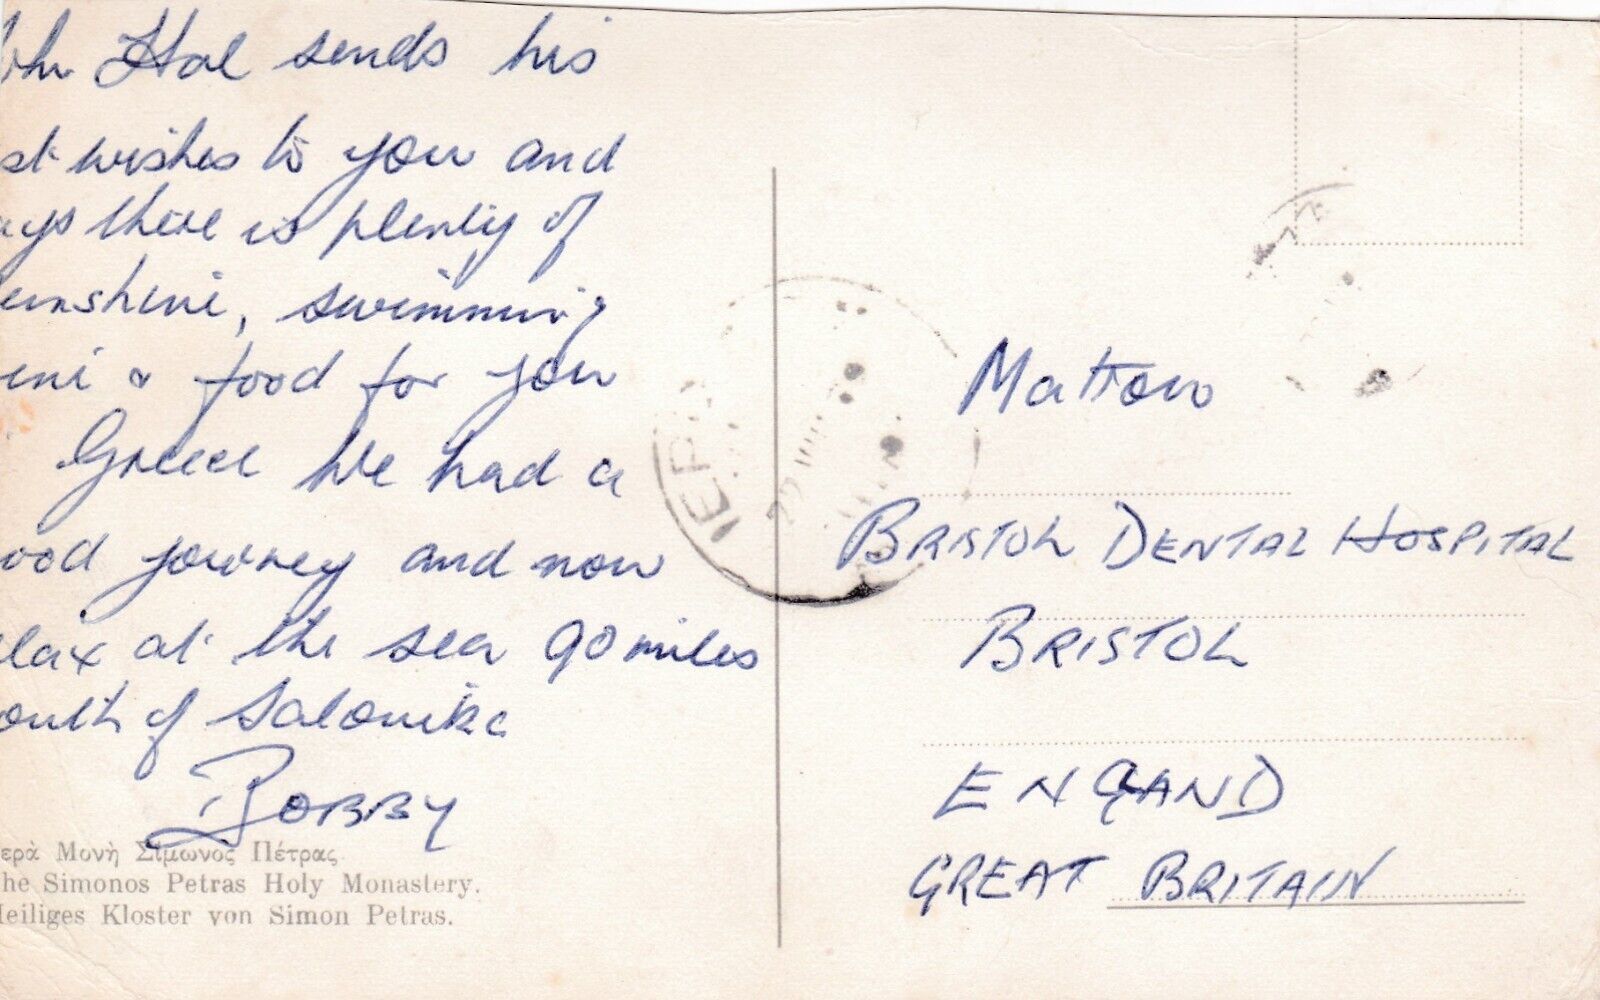 John Hal sends his
best wishes to you and
says there is plenty of
sunshine, swimming
wine & food for you
Greece We had a
good journey and now
relax at the sea 90 miles
south of Salonika
BOBBY
Ἱερὰ Μονὴ Σίμωνος Πέτρας
The Simonos Petras Holy Monastery.
Heiliges Kloster von Simon Petras.
ΙΕΡ
22
Mattow
BRISTOL DENTAL HOSPITAL
BRISTOL
ENGLAND
GREAT BRITAIN